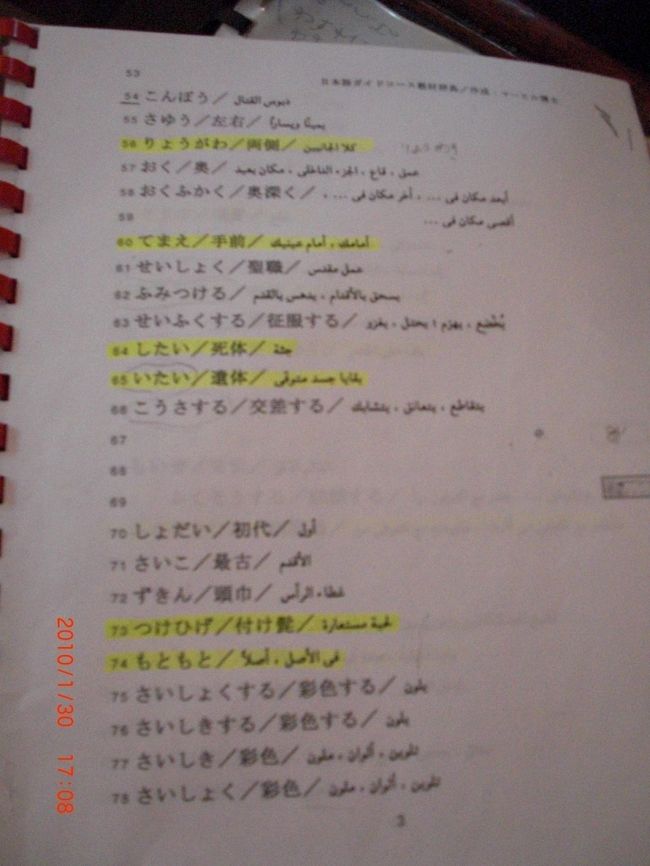 53
日本語ガイドコース教材辞典／作成
54 こんぼう／ دبوس القتال
55 さゆう／左右／ يمينًا ويسارًا
56 りょうがわ／両側／ كلا الجانبين
57 おく／奥／ عمق ، قاع ، الجزء الداخلى ، مكان بعيد
58 おくふかく／奥深く／ أبعد مكان فى ... ، آخر مكان فى ... ،
59 أقصى مكان فى ...
60 てまえ／手前／ أمامك ، أمام عينيك
61 せいしょく／聖職／ عمل مقدس
62 ふみつける／ يسحق بالأقدام ، يدهس بالقدم
63 せいふくする／征服する／ يُخْضِع ، يهزم ؛ يحتل ، يغزو
64 したい／死体／ جثة
65 いたい／遺体／ بقايا جسد متوفى
66 こうさする／交差する／ يتقاطع ، يتعانق ، يتشابك
67
68
69
70 しょだい／初代／ أول
71 さいこ／最古／ الأقدم
72 ずきん／頭巾／ غطاء الرأس
73 つけひげ／付け髭／ لحية مستعارة
74 もともと／ فى الأصل ، أصلاً
75 さいしょくする／彩色する／ يلون
76 さいしきする／彩色する／ يلون
77 さいしき／彩色／ تلوين ، ألوان ، ملون
78 さいしょく／彩色／ تلوين ، ألوان ، ملون
3
2010/1/30 17:08